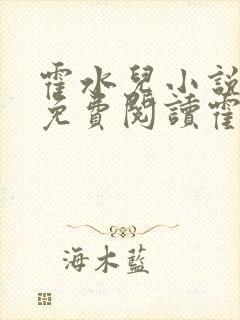 霍水兒小說
免費閱讀霍
海木藍